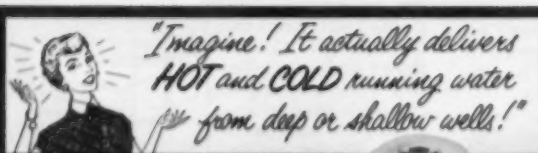 "Imagine! It actually delivers
HOT and COLD running water
from deep or shallow wells!"